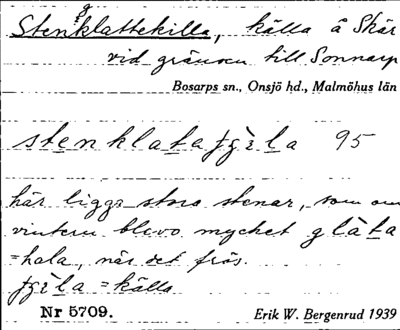 Stenglattekilla, källa å Skär
vid gränsen till Sonnarp
Bosarps sn., Onsjö hd., Malmöhus län
stenklata 95
här ligga stora stenar, som om
vintern blevo mycket glàta
=hala, när det frös.
=källa
Nr 5709.
Erik W. Bergenrud 1939